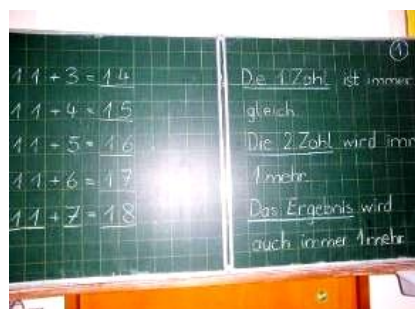 11+3=14
11+4=15
11+5=16
11+6=17
11+7=18
1
Die 1. Zahl ist immer
gleich.
Die 2. Zahl wird imm
1 mehr.
Das Ergebnis wird
auch immer 1 mehr